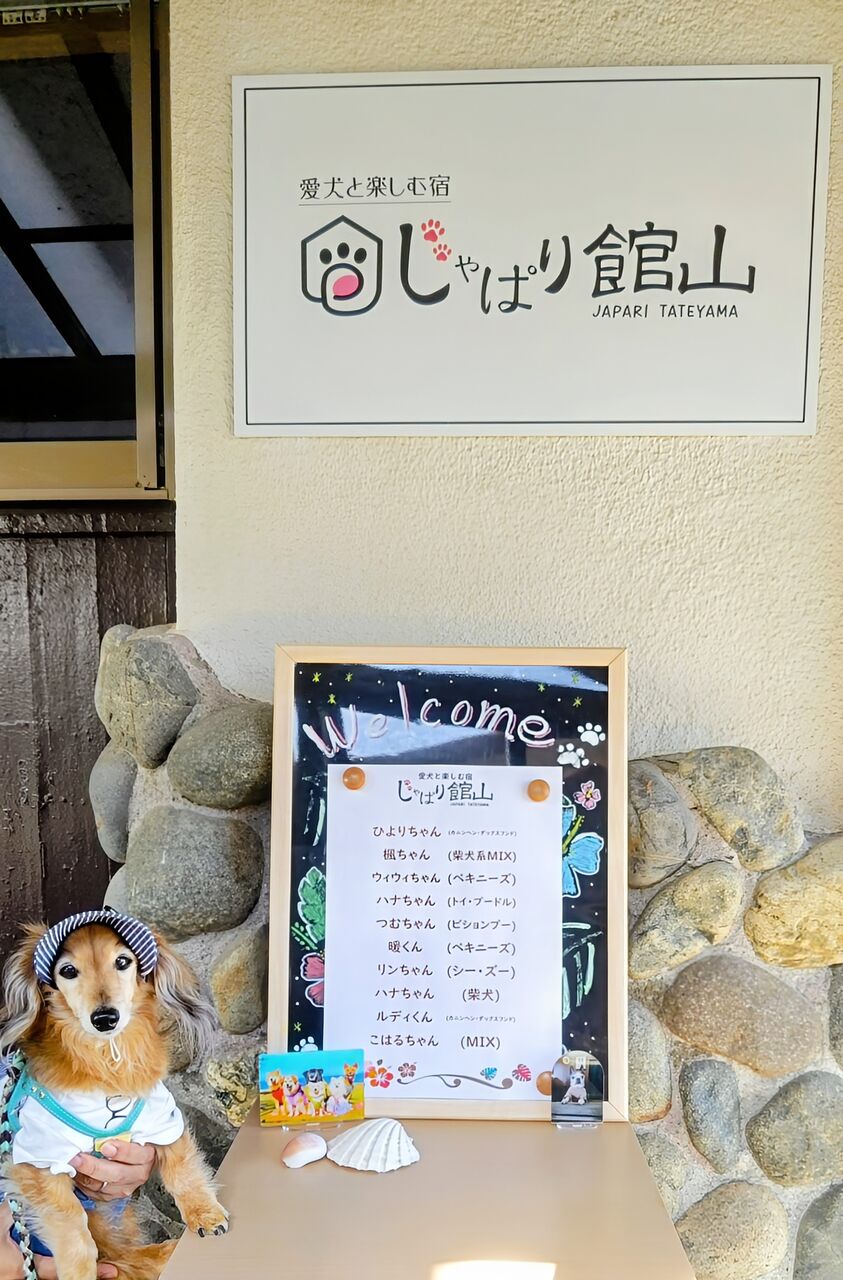 愛犬と楽しむ宿
じゃぱり館山
JAPARI TATEYAMA
Welcome
愛犬と楽しむ宿
じゃぱり館山
JAPARI TATEYAMA
ひよりちゃん (カニンヘン・ダックスフンド)
楓ちゃん (柴犬系MIX)
ウィウィちゃん (ペキニーズ)
ハナちゃん (トイ・プードル)
つむちゃん (ビションプー)
暖くん (ペキニーズ)
リンちゃん (シー・ズー)
ハナちゃん (柴犬)
ルディくん (カニンヘン・ダックスフンド)
こはるちゃん (MIX)